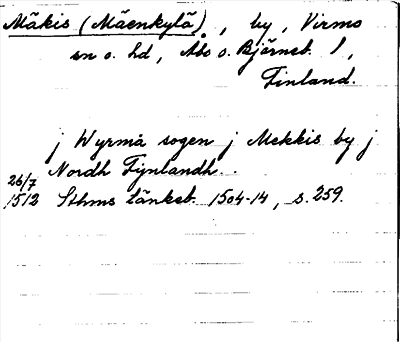 Mäkis (Mäenkylä), by, Virmo
sn o. hd, Åbo o. Björneb. l,
Finland.
j Wyrmå sogen j Mekkis by j
Nordh Fijnlandh.
26/7
1512 Sthms tänkeb. 1504-14, s. 259.